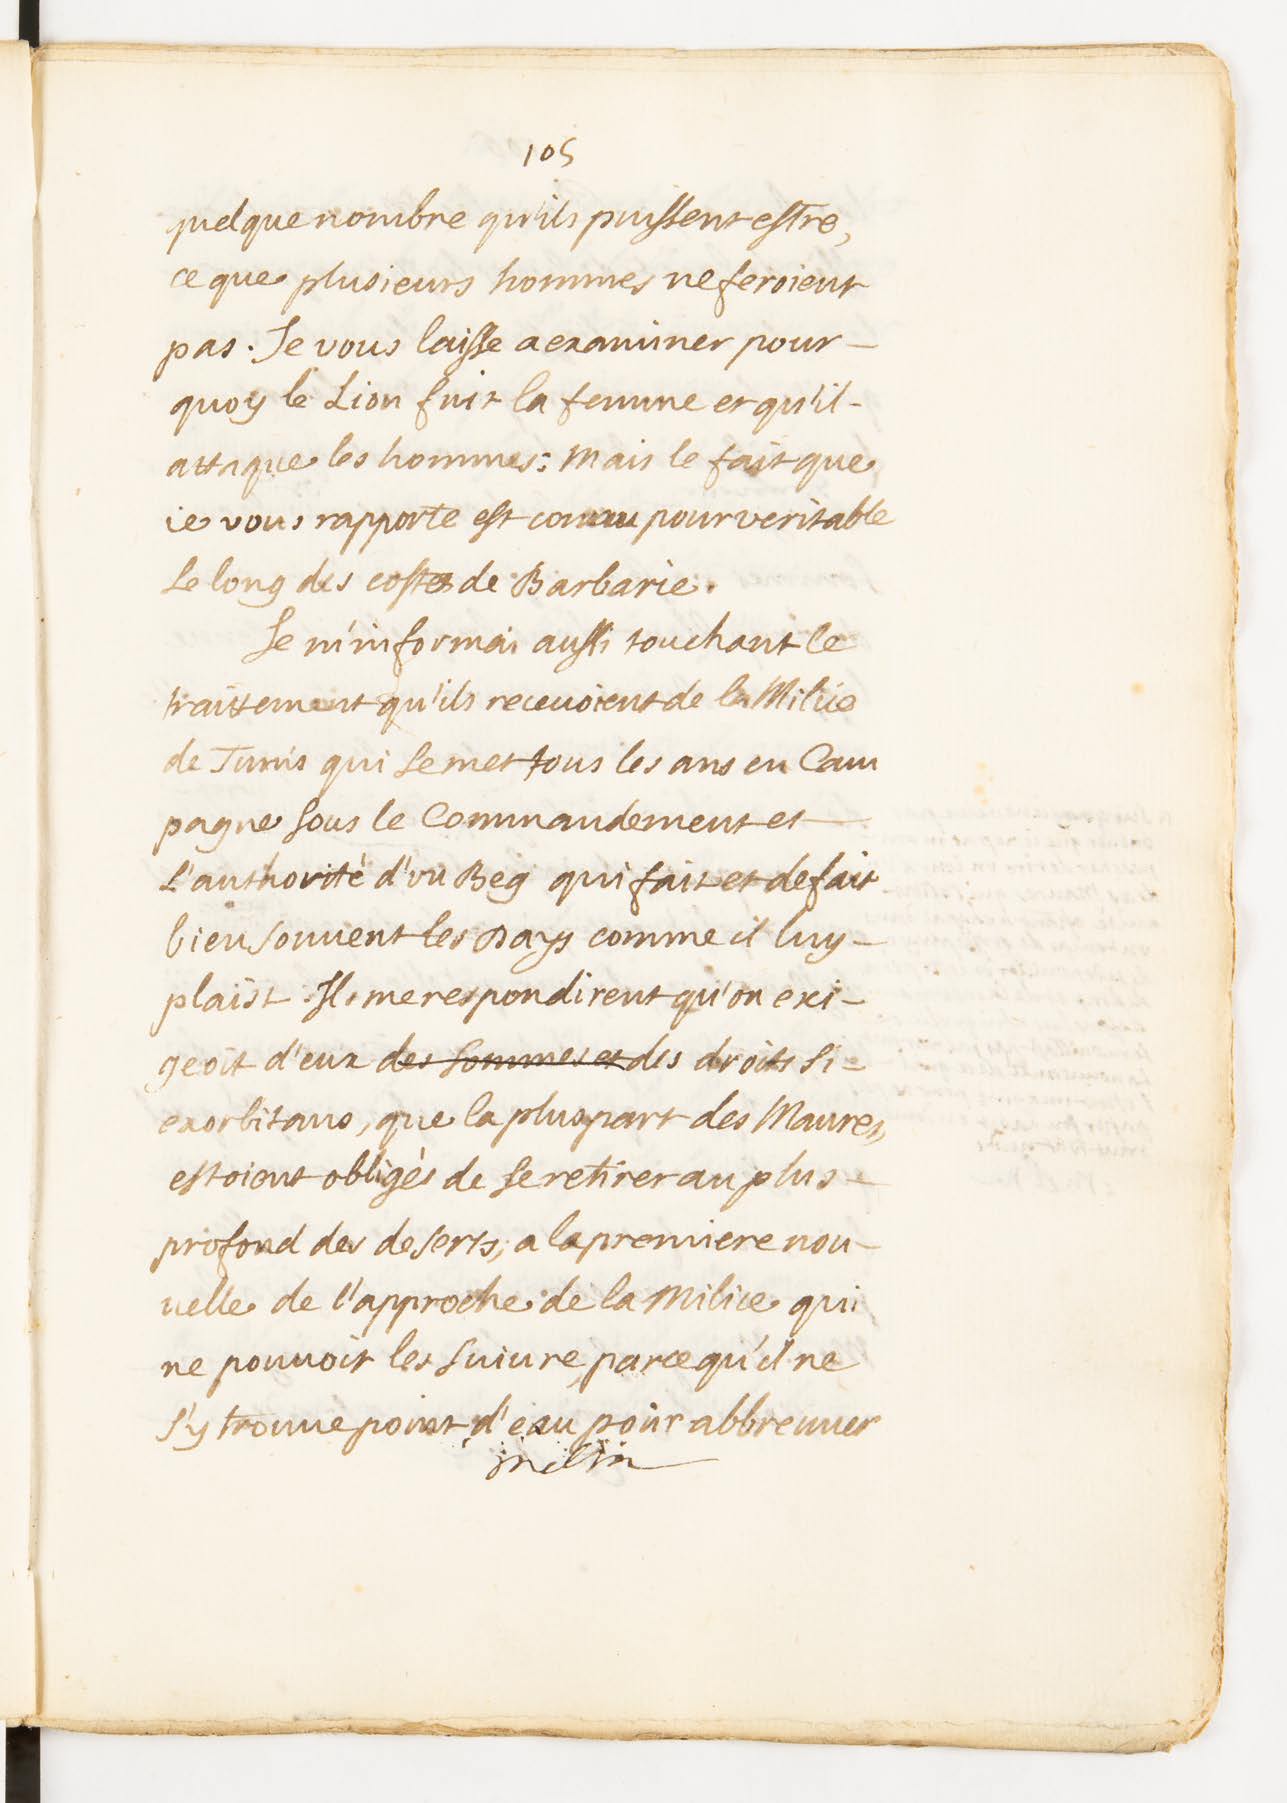 105
quelque nombre qu'ils puissent estre,
ce que plusieurs hommes ne feroient
pas. Je vous laisse a examiner pour-
quoy le Lion fuit la femme et qu'il-
attaque les hommes: Mais le fait que
ie vous rapporte est connu pour veritable
Le long des costes de Barbarie.
Je m'informai aussi touchant le
traittement qu'ils receuoient de la Milice
de Tunis qui se met tous les ans en Cam
pagne sous le Commandement et
L'authorité d'vn Beg qui fait et defait
bien souuent les Days comme il luy-
plaist. Ils me respondirent qu'on exi-
geoit d'eux des sommes et des droits si=
exorbitans, que la pluspart des Maures,
estoient obligés de se retirer au plus-
profond des deserts, a la premiere nou-
uelle de l'approche de la Milice qui
ne pouuoit les suiure, parce qu'il ne
s'y trouue point d'eau pour abbreuuer